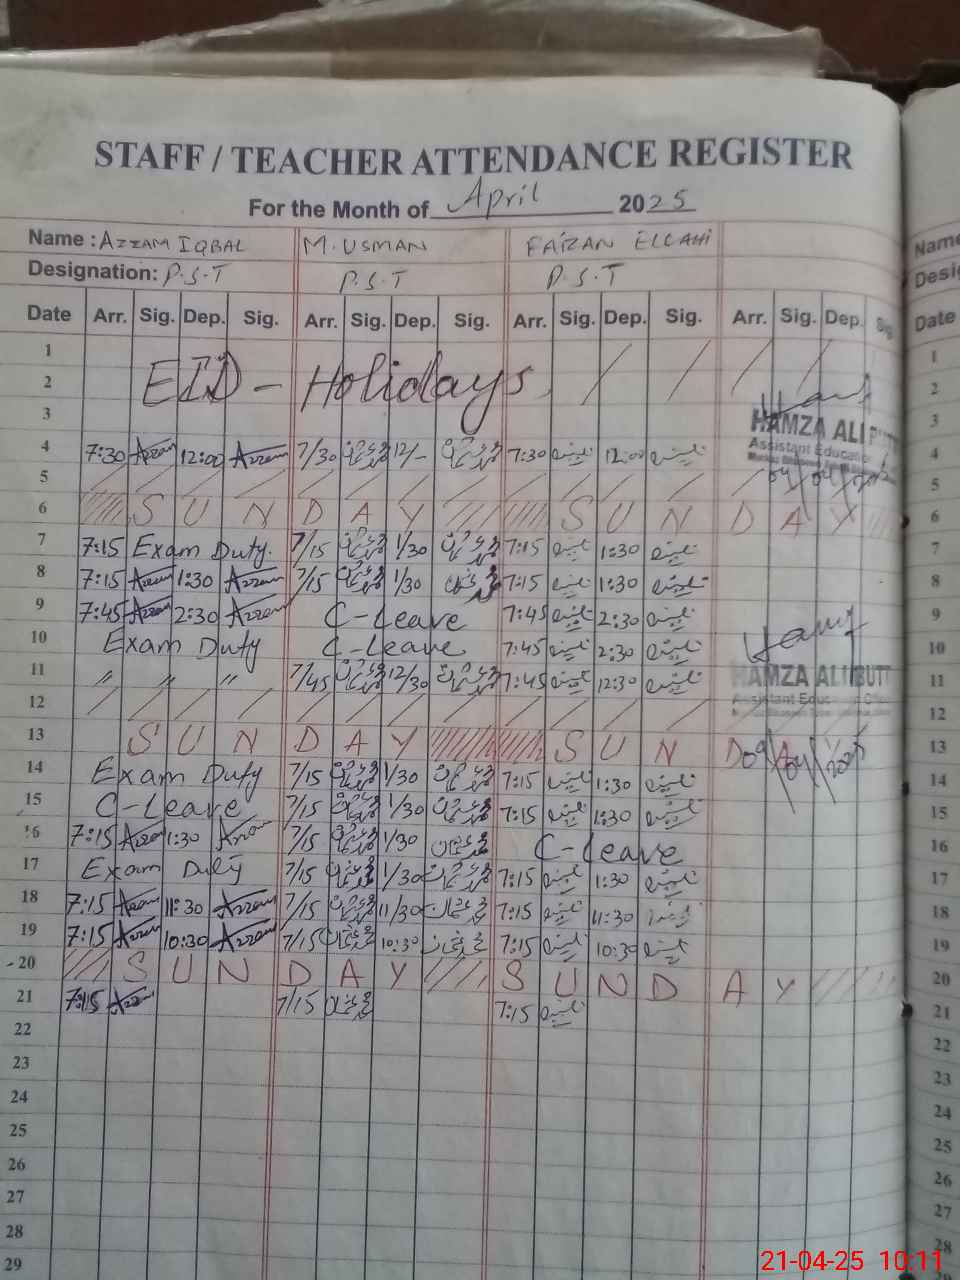 STAFF / TEACHER ATTENDANCE REGISTER
For the Month of April 2025
Name : AZZAM IQBAL M. USMAN FAIZAN ELLAHI Name
Designation: P.S.T P.S.T P.S.T
Date Arr. Sig. Dep. Sig. Arr. Sig. Dep. Sig. Arr. Sig. Dep. Sig. Arr. Sig. Dep. Sig. Date
1 1
2 EID - Holidays 2
3 3
HAMZA ALI BUTT
4 7:30 Azzam 12:00 Azzam 7/30 محمد عثمان 12/- محمد عثمان 7:30 12:00 4
Assistant Education
5 5
6 SUNDAY SUNDAY 6
7 7:15 Exam Duty. 7/15 محمد عثمان 1/30 محمد عثمان 7:15 1:30 7
8 7:15 Azzam 1:30 Azzam 7/15 محمد عثمان 1/30 محمد عثمان 7:15 1:30 8
9 7:45 Azzam 2:30 Azzam C-Leave 7:45 2:30 9
10 Exam Duty C-Leave 7:45 2:30 10
11 " " " 7/45 محمد عثمان 12/30 محمد عثمان 7:45 12:30 11
HAMZA ALI BUTT
Assistant Education Officer
12 12
13 SUNDAY SUNDA 13
09/04/2025
14 Exam Duty 7/15 محمد عثمان 1/30 محمد عثمان 7:15 1:30 14
15 C-Leave 7/15 محمد عثمان 1/30 محمد عثمان 7:15 1:30 15
16 7:15 Azzam 1:30 Azzam 7/15 محمد عثمان 1/30 محمد عثمان C-Leave 16
17 Exam Duty 7/15 محمد عثمان 1/30 محمد عثمان 7:15 1:30 17
18 7:15 Azzam 11:30 Azzam 7/15 محمد عثمان 11/30 محمد عثمان 7:15 11:30 18
19 7:15 Azzam 10:30 Azzam 7/15 محمد عثمان 10:30 محمد عثمان 7:15 10:30 19
20 SUNDAY SUNDAY 20
21 7:15 Azzam 7/15 محمد عثمان 7:15 21
22 22
23 23
24 24
25 25
26 26
27 27
28 28
29 29
21-04-25 10:11